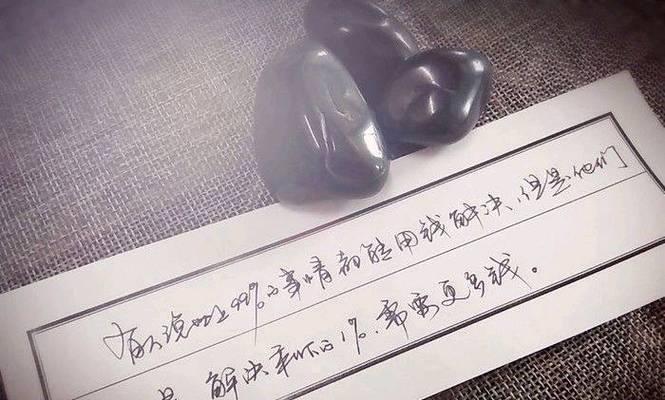 有人说世上99%的事情都能用钱解决，但是他们
是，解决剩下的1%，需要更多钱。